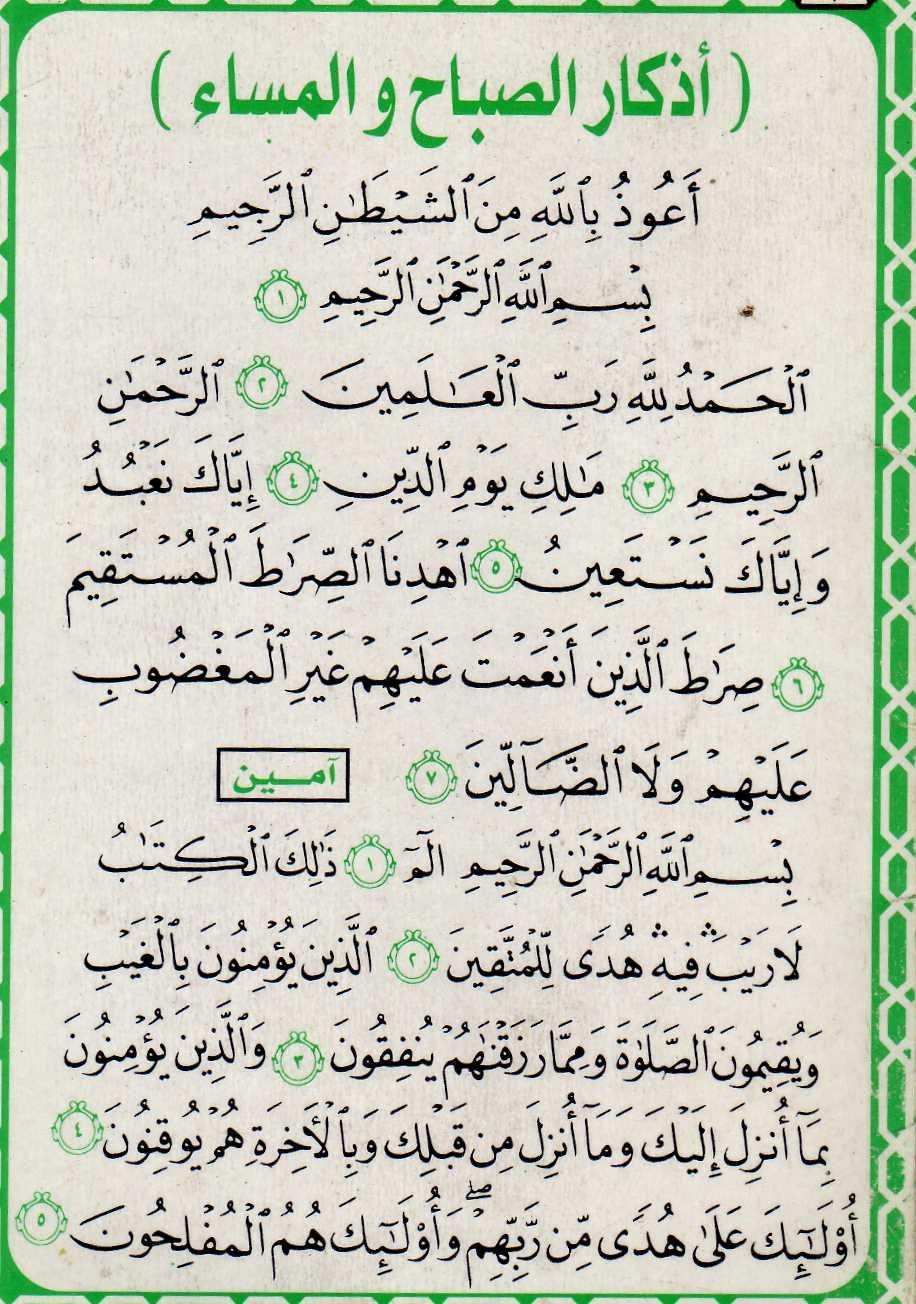 ( أذكار الصباح و المساء )
أَعُوذُ بِٱللَّهِ مِنَ ٱلشَّيْطَٰنِ ٱلرَّجِيمِ
بِسْمِ ٱللَّهِ ٱلرَّحْمَٰنِ ٱلرَّحِيمِ ١
ٱلْحَمْدُ لِلَّهِ رَبِّ ٱلْعَٰلَمِينَ ٢ ٱلرَّحْمَٰنِ
ٱلرَّحِيمِ ٣ مَٰلِكِ يَوْمِ ٱلدِّينِ ٤ إِيَّاكَ نَعْبُدُ
وَإِيَّاكَ نَسْتَعِينُ ٥ ٱهْدِنَا ٱلصِّرَٰطَ ٱلْمُسْتَقِيمَ
٦ صِرَٰطَ ٱلَّذِينَ أَنْعَمْتَ عَلَيْهِمْ غَيْرِ ٱلْمَغْضُوبِ
عَلَيْهِمْ وَلَا ٱلضَّآلِّينَ ٧ آمـين
بِسْمِ ٱللَّهِ ٱلرَّحْمَٰنِ ٱلرَّحِيمِ الٓمٓ ١ ذَٰلِكَ ٱلْكِتَٰبُ
لَا رَيْبَ ۛ فِيهِ ۛ هُدًى لِّلْمُتَّقِينَ ٢ ٱلَّذِينَ يُؤْمِنُونَ بِٱلْغَيْبِ
وَيُقِيمُونَ ٱلصَّلَوٰةَ وَمِمَّا رَزَقْنَٰهُمْ يُنفِقُونَ ٣ وَٱلَّذِينَ يُؤْمِنُونَ
بِمَآ أُنزِلَ إِلَيْكَ وَمَآ أُنزِلَ مِن قَبْلِكَ وَبِٱلْأَخِرَةِ هُمْ يُوقِنُونَ ٤
أُو۟لَٰٓئِكَ عَلَىٰ هُدًى مِّن رَّبِّهِمْ ۖ وَأُو۟لَٰٓئِكَ هُمُ ٱلْمُفْلِحُونَ ٥